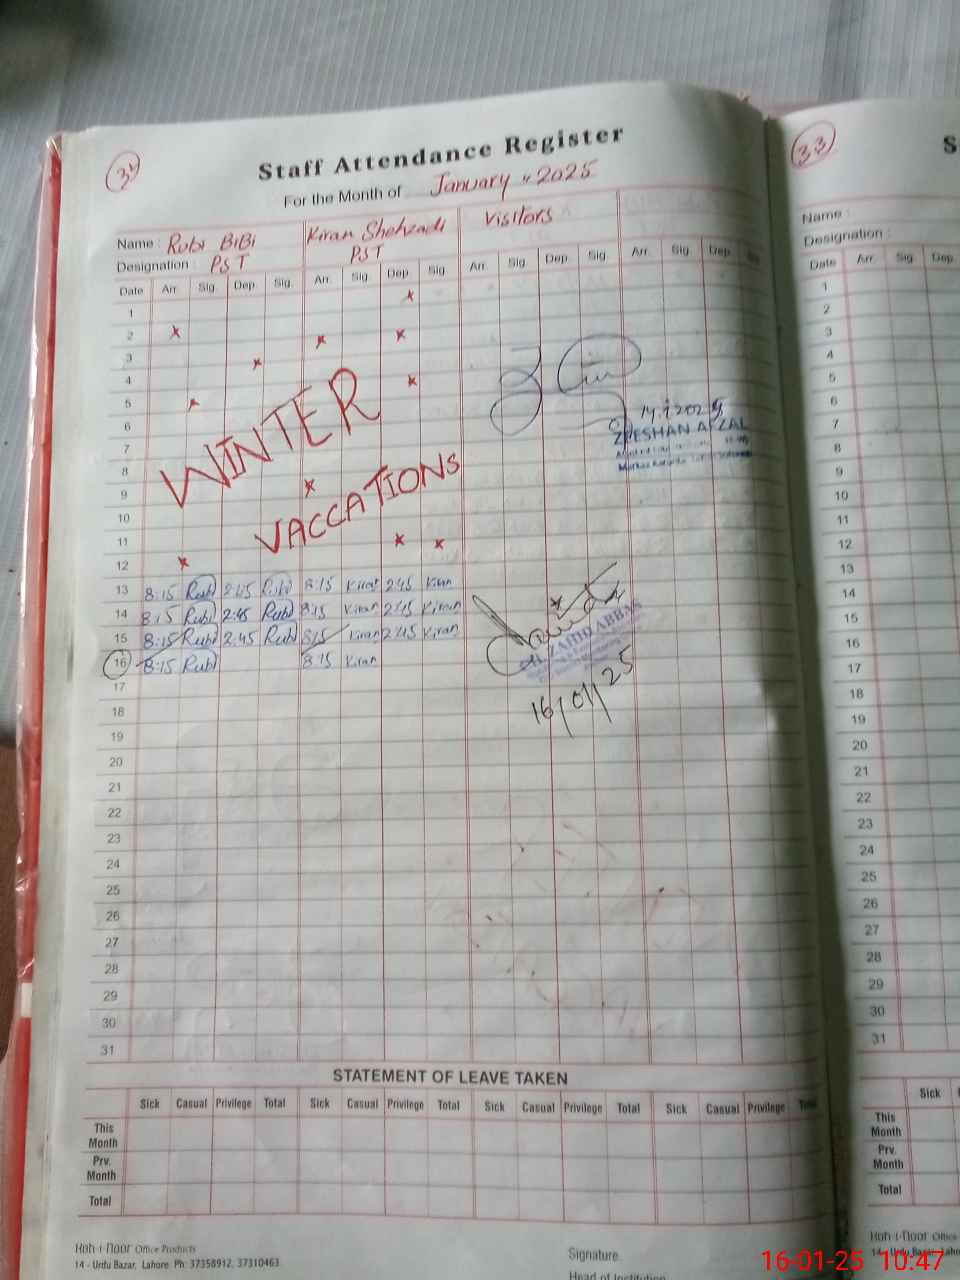 34
Staff Attendance Register
For the Month of January, 2025
Name : Rubi BiBi Kiran Shehzadi Visitors
Designation : PST PST
Date Arr. Sig. Dep. Sig. Arr. Sig. Dep. Sig. Arr. Sig. Dep. Sig. Arr. Sig. Dep.
1
2
3
4
5
6
7
8
9
10
11
12
WINTER
VACCATIONS
14.1.2025
ZEESHAN AFZAL
13 8:15 Rubi 2:45 Rubi 8:15 Kiran 2:45 Kiran
14 8:15 Rubi 2:45 Rubi 8:15 Kiran 2:45 Kiran
15 8:15 Rubi 2:45 Rubi 8:15 Kiran 2:45 Kiran
16 8:15 Rubi 8:15 Kiran
ZAHID ABBAS
16/01/25
17
18
19
20
21
22
23
24
25
26
27
28
29
30
31
STATEMENT OF LEAVE TAKEN
Sick Casual Privilege Total Sick Casual Privilege Total Sick Casual Privilege Total Sick Casual Privilege Total
This
Month
Prv.
Month
Total
Koh-i-Noor Office Products
14 - Urdu Bazar, Lahore Ph: 37358912, 37310463
Signature
Head of Institution
33
S
Name :
Designation :
Date Arr. Sig. Dep.
1
2
3
4
5
6
7
8
9
10
11
12
13
14
15
16
17
18
19
20
21
22
23
24
25
26
27
28
29
30
31
Sick
This
Month
Prv.
Month
Total
Koh-i-Noor Office
14 - Urdu Bazar, Laho
16-01-25 10:47